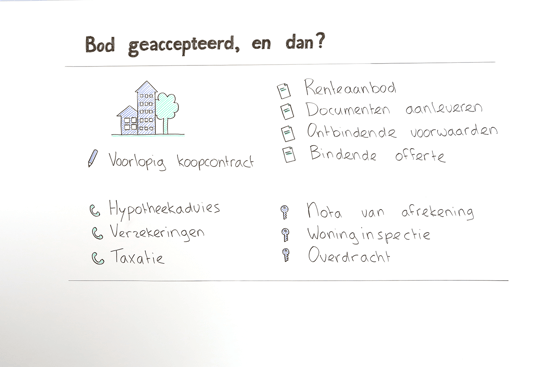 Bod geaccepteerd, en dan?
Voorlopig koopcontract
Hypotheekadvies
Verzekeringen
Taxatie
Renteaanbod
Documenten aanleveren
Ontbindende voorwaarden
Bindende offerte
Nota van afrekening
Woninginspectie
Overdracht